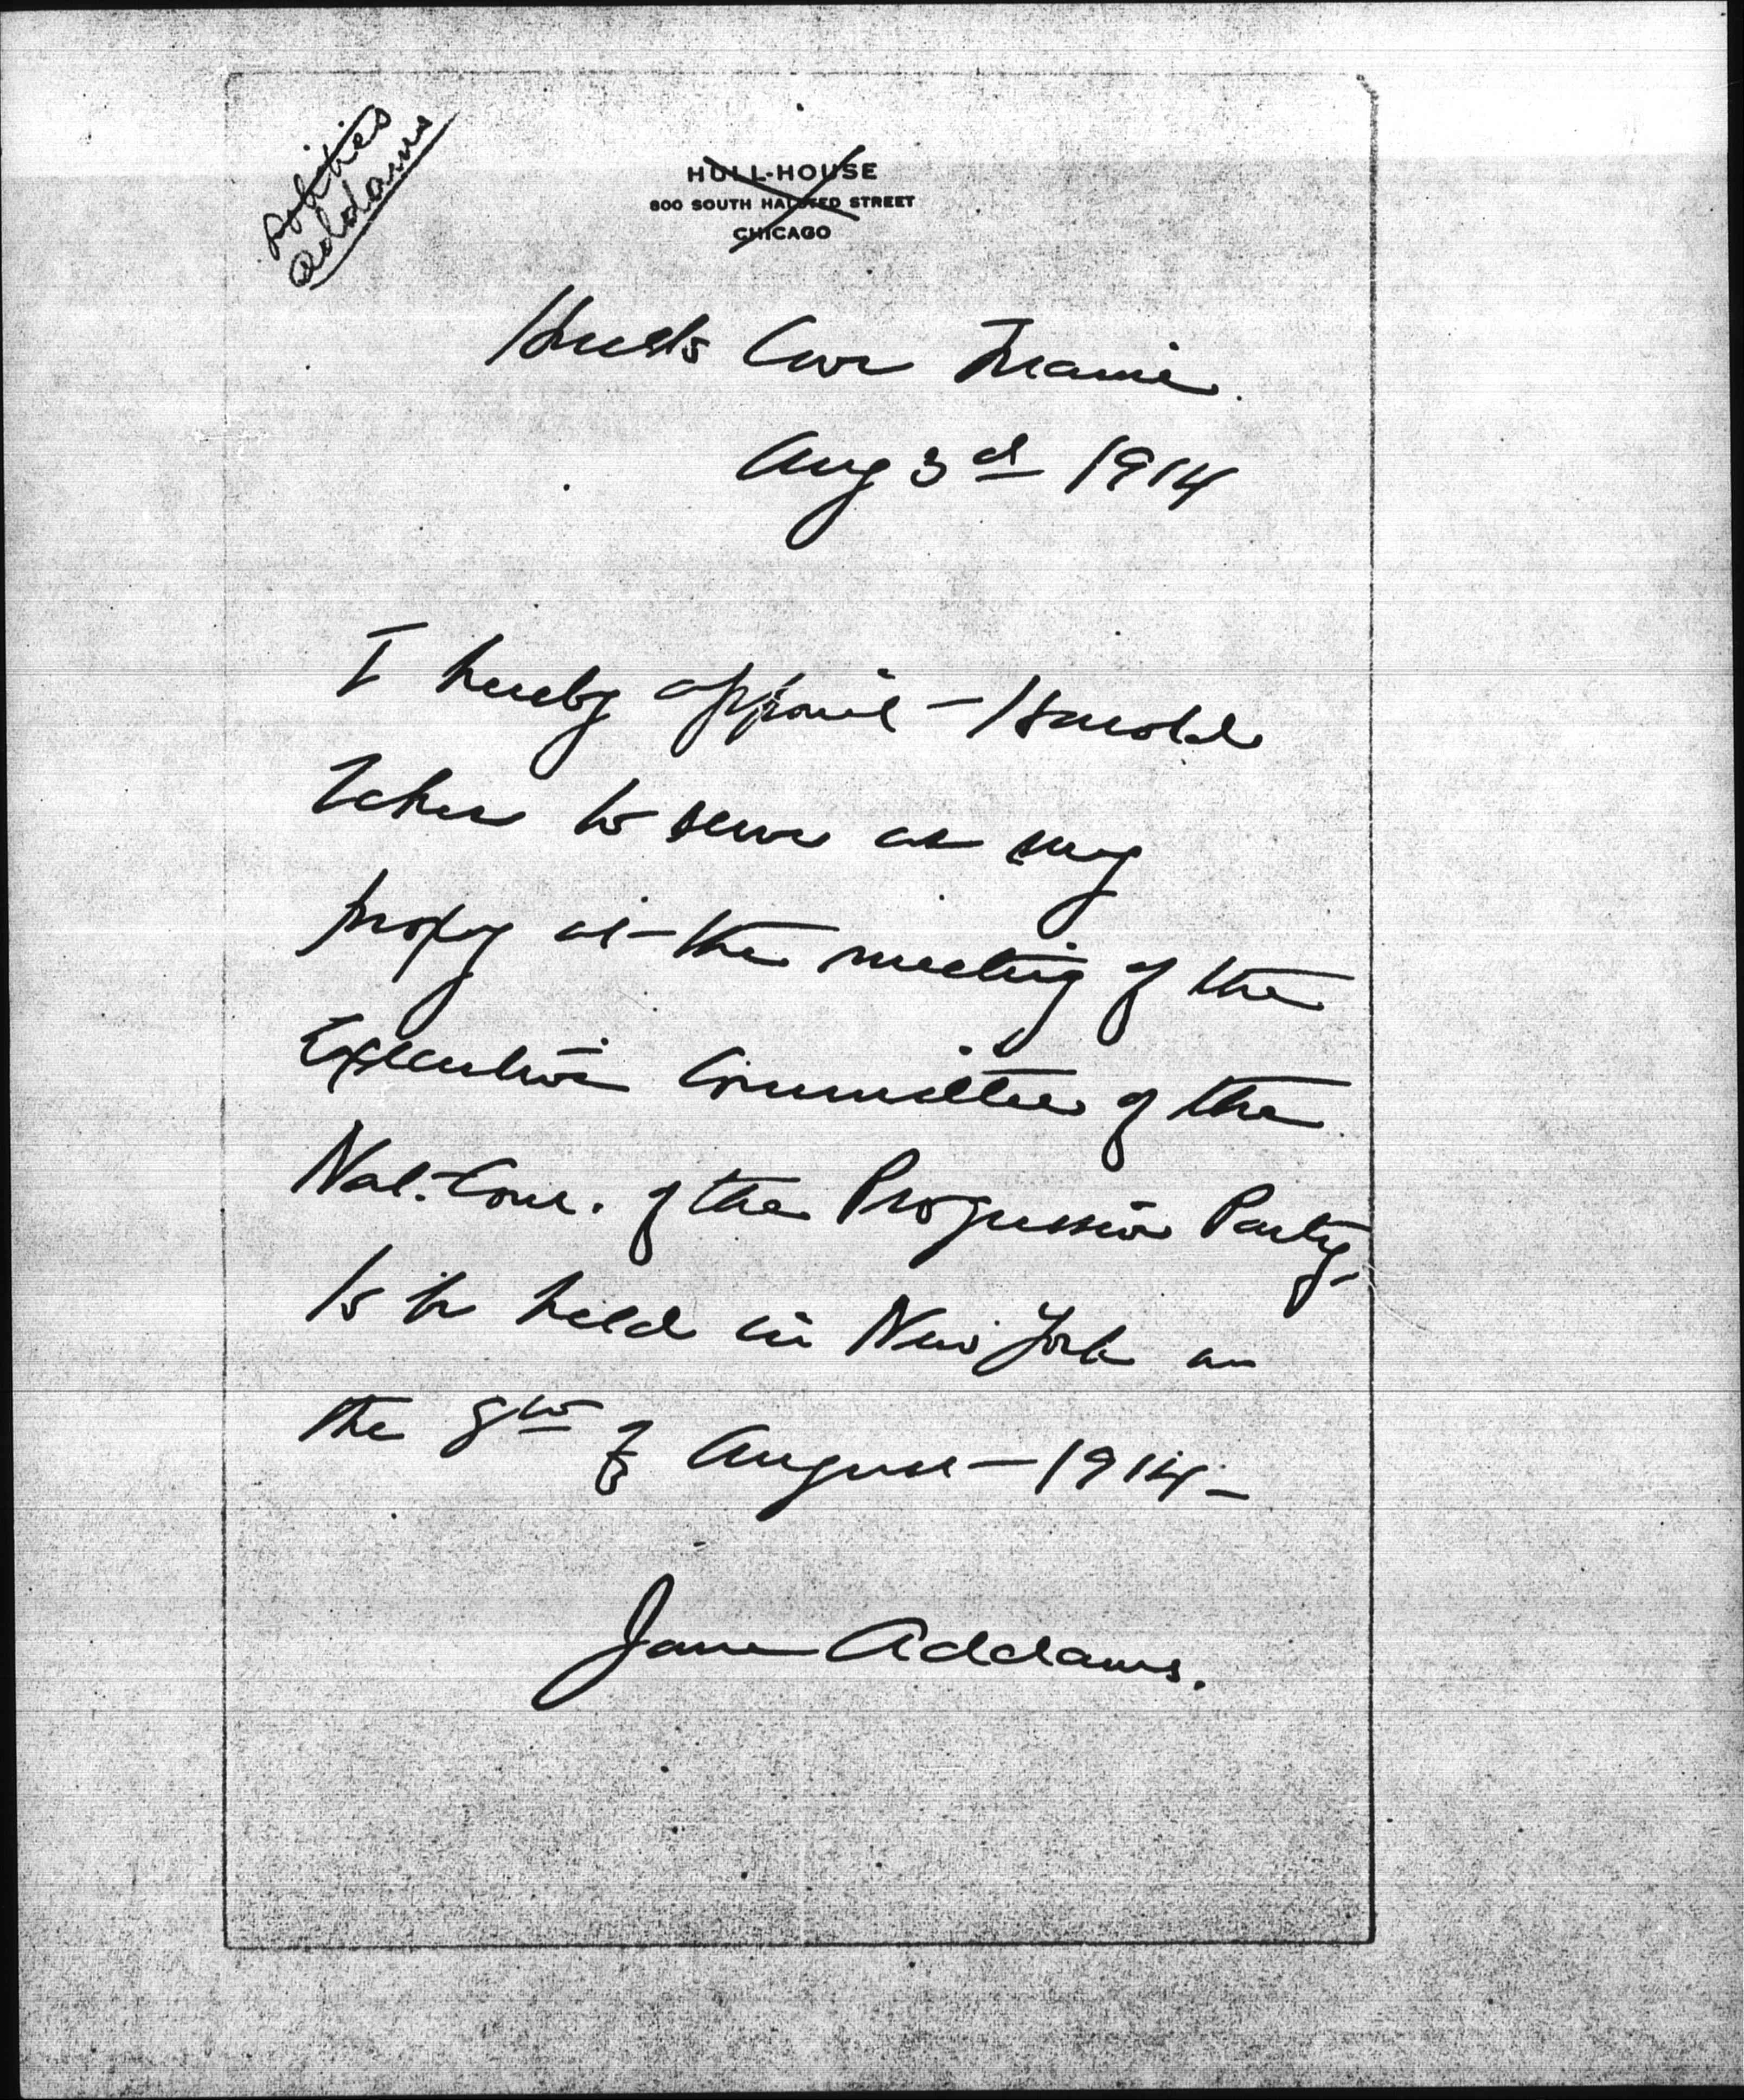 politics
Addams
HULL-HOUSE
800 SOUTH HALSTED STREET
CHICAGO
Hulls Cove Maine.
Aug 3rd 1914
I hereby appoint Harold
Ickes to serve as my
proxy at the meeting of the
Executive Committee of the
Nat. Com. of the Progressive Party
to be held in New York on
the 8th of August 1914 –
Jane Addams.